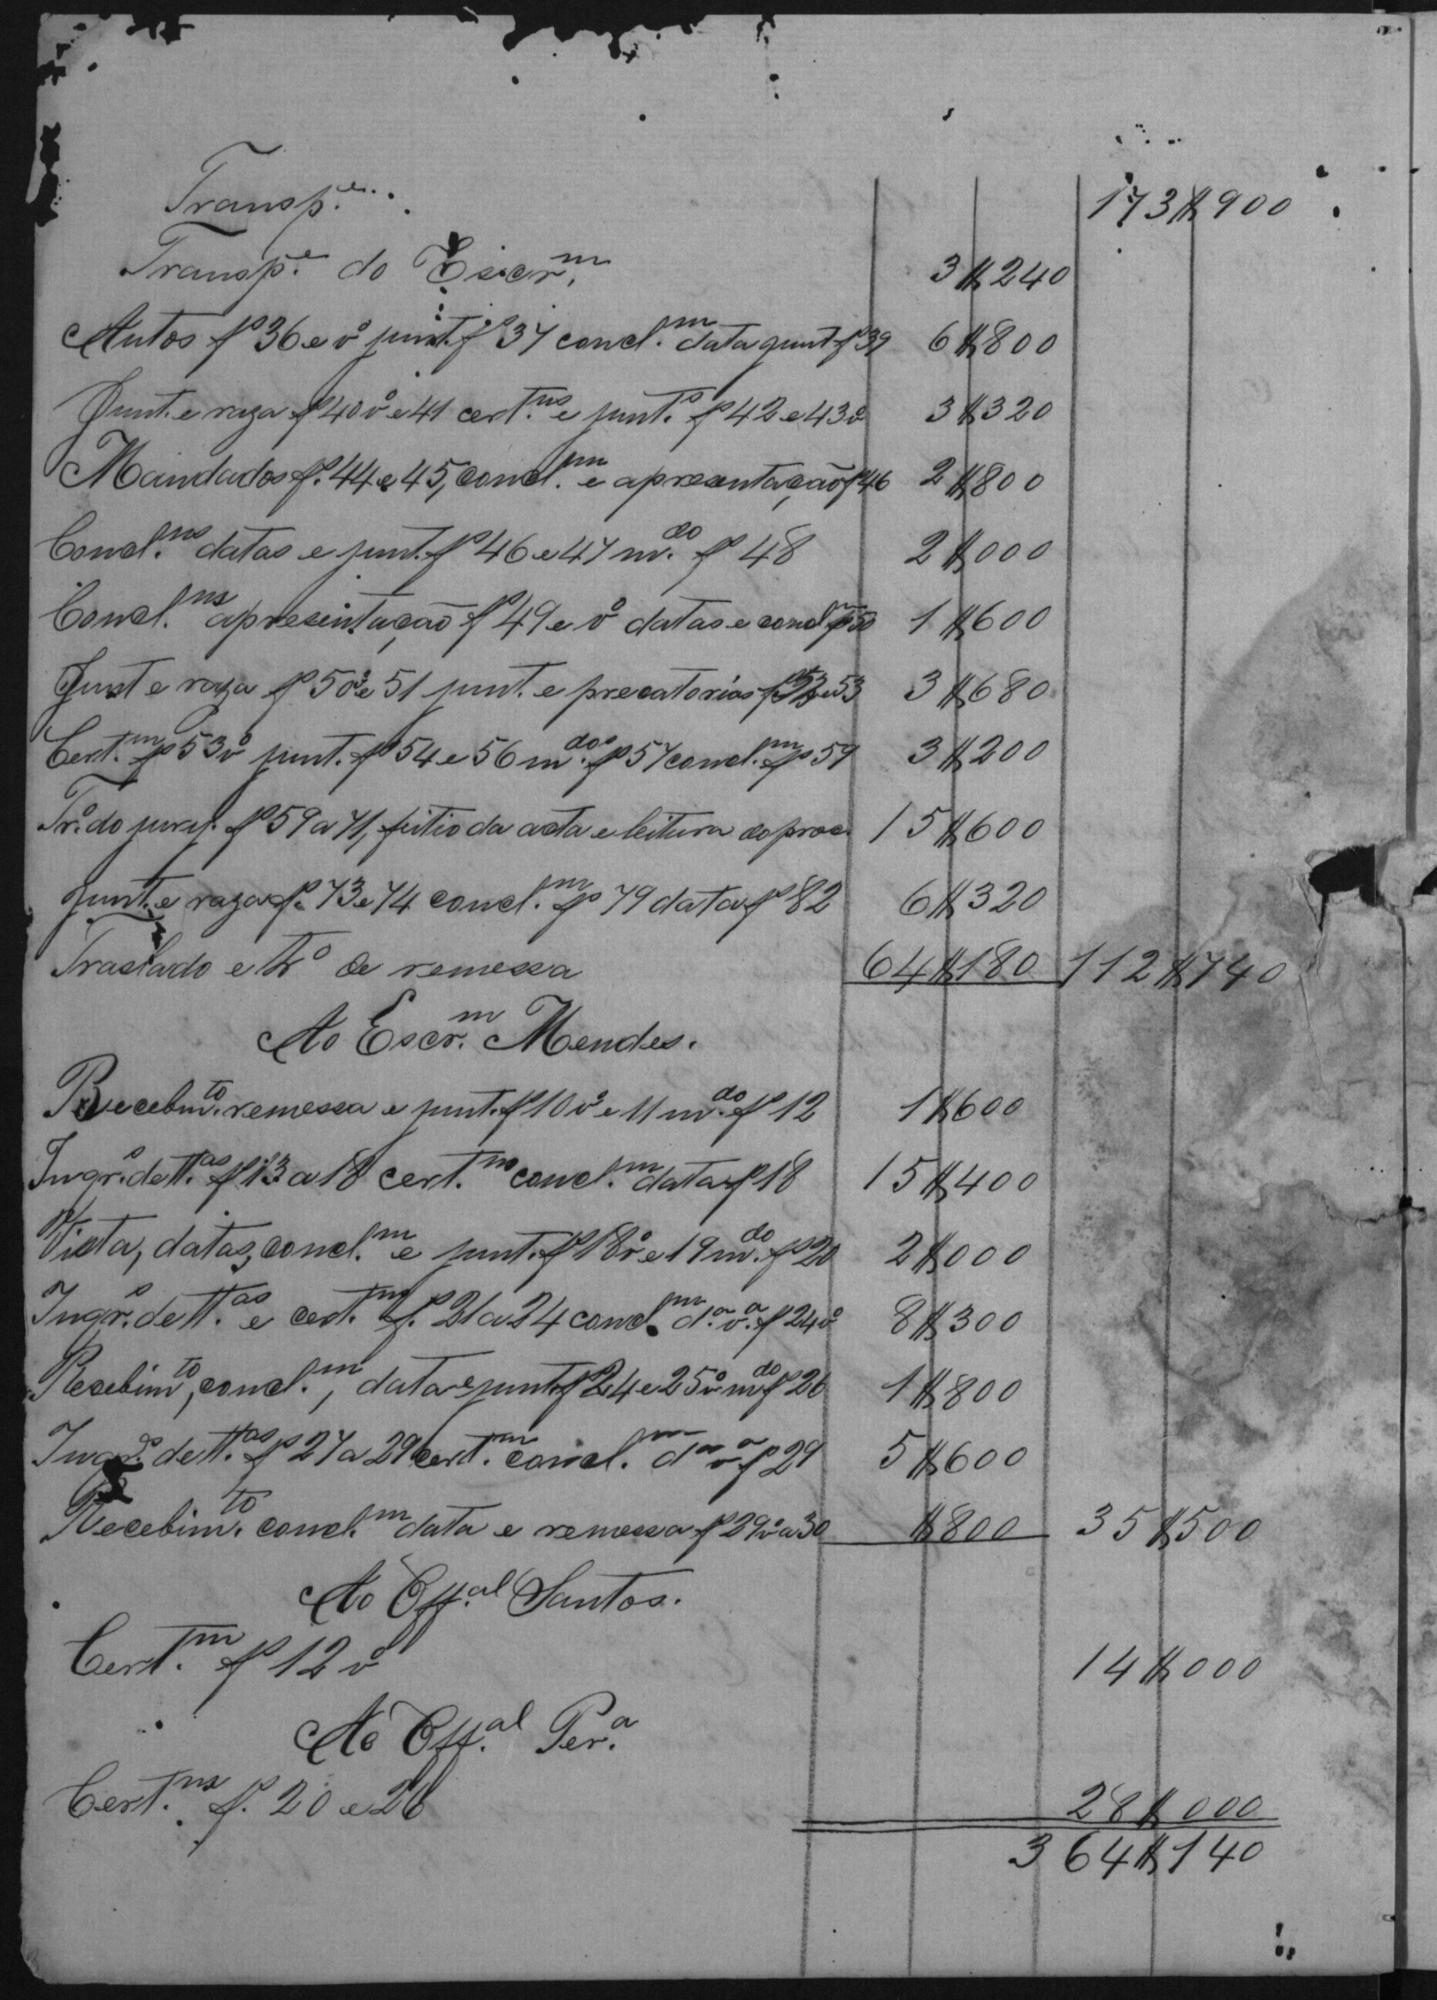 Transp.e... 173$900
Transp.e do Escr.m 3$240
Autos f.º 36 e vº junt. fº 37 concl.m data junt. fº 39 6$800
Junt. e raza fº 40 vº e 41 cert.ns e junt.s fº 42 e 43 vº 3$320
Mandados f.º 44 e 45, concl.m e apresentação fº 46 2$800
Concl.ns datas e junt. fº 46 e 47 m.do fº 48 2$000
Concl.ns apresentação fº 49 e vº datas e concl.m fº 50 1$600
Junt e raza fº 50 vº e 51 junt. e precatorias fº 52 e 53 3$680
Cert.m fº 53 vº junt. fº 54 e 56 m.dos fº 57 concl.m fº 59 3$200
Tr.º do jury. fº 59 a 71, feitio da acta e leitura do proc. 15$600
Junt. e raza f.º 73 e 74 concl.m fº 79 data fº 82 6$320
Traslado e tr.º de remessa 64$180 112$740
Ao Escr.m Mendes.
Recebim.to remessa e junt. fº 10 vº e 11 m.do fº 12 1$600
Inqr.º de tt.as fº 13 a 18 cert.ns concl.m data fº 18 15$400
Vista, datas, concl.m e junt. fº 18 vº e 19 m.do fº 20 2$000
Inqr.º de tt.as e cert.m f. 21 a 24 concl.m d.a v.a fº 24 vº 8$300
Recebim.to, concl.m, data e junt. fº 24 e 25 vº m.do fº 26 1$800
Inqr.º de tt.as fº 27 a 29 cert.m concl.m d.a v.a fº 29 5$600
Recebim.to concl.m data e remessa fº 29 vº a 30 $800 35$500
Ao Off.al Santos.
Cert.m fº 12 vº 14$000
Ao Off.al Per.a
Cert.ns f. 20 e 26 28$000
364$140